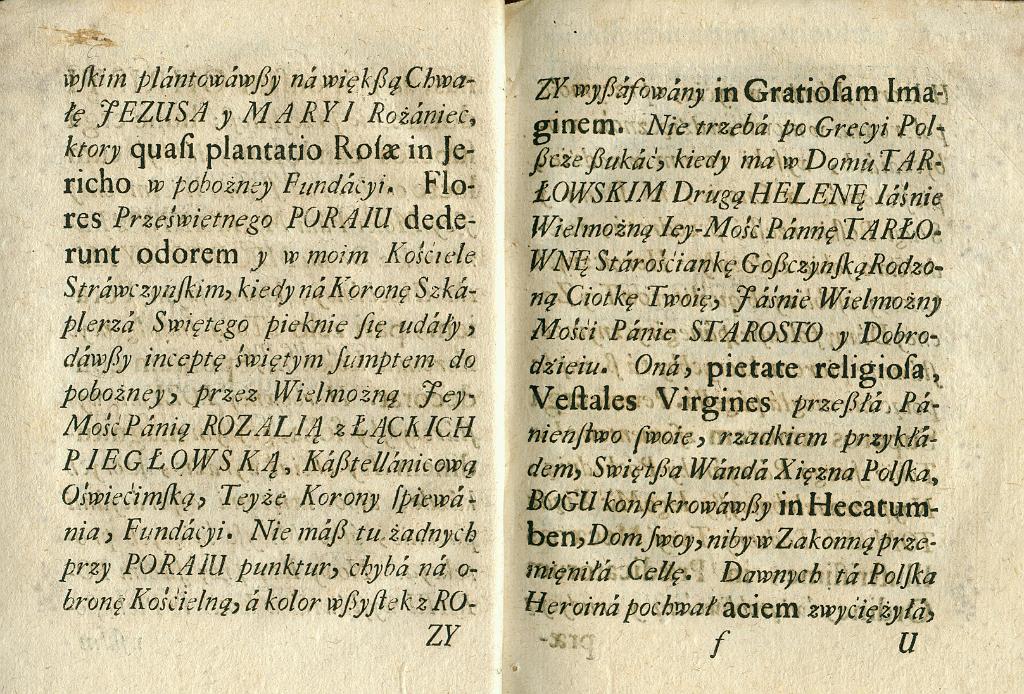 wſkim plántowáwßy ná więkßą Chwa-
łę JEZUSA y MARYI Rożániec,
ktory quaſi plantatio Roſæ in Je-
richo w pobożney Fundácyi. Flo-
res Prześwietnego PORAIU dede-
runt odorem y w moim Kośćiele
Stráwczynſkim, kiedy ná Koronę Szká-
plerzá Swiętego pieknie ſię udáły,
dáwßy inceptę świętym ſumptem do
pobożney, przez Wielmożną Jey-
Mość Pánią ROZALIĄ z ŁĄCKICH
PIEGŁOWSKĄ, Káßtellánicową
Oświećimſką, Teyże Korony ſpiewá-
nia, Fundácyi. Nie máß tu żadnych
przy PORAIU punktur, chybá ná o-
bronę Kośćielną, á kolor wßyſtek z RO-
ZY
ZY wyßáfowány in Gratioſam Ima-
ginem. Nie trzebá po Grecyi Pol-
ßcze ßukáć, kiedy ma w Domu TAR-
ŁOWSKIM Drugą HELENĘ Iáśnie
Wielmożną Iey-Mość Pánnę TARŁO-
WNĘ Stárośćiankę Goßczynſką Rodzo-
ną Ciotkę Twoię, Jáśnie Wielmożny
Mośći Pánie STAROSTO y Dobro-
dzieiu. Oná, pietate religioſa,
Veſtales Virgines przeßłá Pá-
nieńſtwo ſwoie, rzadkiem przykłá-
dem, Swiętßa Wándá Xięzna Polſka,
BOGU konſekrowáwßy in Hecatum-
ben, Dom ſwoy, niby w Zakonną prze-
mięniłá Cellę. Dawnych tá Polſka
Heroiná pochwał aciem zwyćiężyłá,
f U